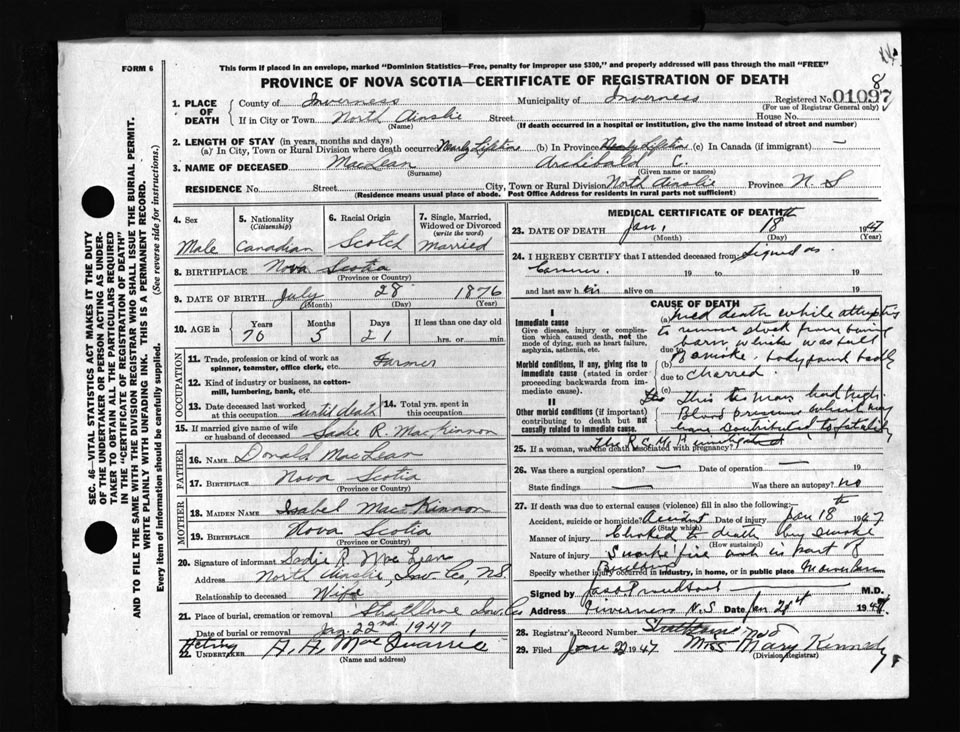 FORM 6
This form if placed in an envelope, marked "Dominion Statistics—Free, penalty for improper use $300," and properly addressed will pass through the mail "FREE"
PROVINCE OF NOVA SCOTIA—CERTIFICATE OF REGISTRATION OF DEATH
8
1. PLACE OF DEATH County of Inverness Municipality of Inverness Registered No. 01097
(For use of Registrar General only)
If in City or Town North Ainslie Street House No.
(Name) (If death occurred in a hospital or institution, give the name instead of street and number)
2. LENGTH OF STAY (in years, months and days)
(a) In City, Town or Rural Division where death occurred Nearly Lifetime (b) In Province Nearly Lifetime (c) In Canada (if immigrant) —
3. NAME OF DECEASED MacLean Archibald C.
(Surname) (Given name or names)
RESIDENCE No. Street City, Town or Rural Division North Ainslie Province N S
(Residence means usual place of abode. Post Office Address for residents in rural parts not sufficient)
SEC. 46—VITAL STATISTICS ACT MAKES IT THE DUTY
OF THE UNDERTAKER OR PERSON ACTING AS UNDER-
TAKER TO OBTAIN ALL THE PARTICULARS REQUIRED
IN THE "CERTIFICATE OF REGISTRATION OF DEATH"
AND TO FILE THE SAME WITH THE DIVISION REGISTRAR WHO SHALL ISSUE THE BURIAL PERMIT.
WRITE PLAINLY WITH UNFADING INK. THIS IS A PERMANENT RECORD.
Every item of information should be carefully supplied. (See reverse side for instructions.)
4. Sex Male
5. Nationality (Citizenship) Canadian
6. Racial Origin Scotch
7. Single, Married, Widowed or Divorced (write the word) Married
8. BIRTHPLACE Nova Scotia
(Province or Country)
9. DATE OF BIRTH July 28 1876
(Month) (Day) (Year)
10. AGE in Years 70 Months 5 Days 21 If less than one day
hrs. or min.
OCCUPATION
11. Trade, profession or kind of work as Farmer
spinner, teamster, office clerk, etc.
12. Kind of industry or business, as cotton-
mill, lumbering, bank, etc.
13. Date deceased last worked at this occupation until death 14. Total yrs. spent in this occupation
15. If married give name of wife or husband of deceased Sadie R. MacKinnon
FATHER
16. NAME Donald MacLean
17. BIRTHPLACE Nova Scotia
(Province or Country)
MOTHER
18. MAIDEN NAME Isabel MacKinnon
19. BIRTHPLACE Nova Scotia
(Province or Country)
20. Signature of informant Sadie R. Mac Lean
Address North Ainslie, Inv. Co, N.S.
Relationship to deceased Wife
21. Place of burial, cremation or removal Strathlorne Inv. Co
Date of burial or removal Jan. 22nd 1947
Acting
22. UNDERTAKER A. A. MacQuarrie
(Name and address)
MEDICAL CERTIFICATE OF DEATH
23. DATE OF DEATH Jan. 18th 1947
(Month) (Day) (Year)
24. I HEREBY CERTIFY that I attended deceased from: Signed as
Coroner 19 to 19
and last saw h im alive on 19
CAUSE OF DEATH
I
Immediate cause
Give disease, injury or complication which caused death, not the mode of dying, such as heart failure, asphyxia, asthenia, etc.
Morbid conditions, if any, giving rise to immediate cause (stated in order proceeding backwards from immediate cause).
II
Other morbid conditions (if important) contributing to death but not causally related to immediate cause.
(a) met death while attempting
to remove stock from burning
due to barn, while was full
(b) smoke. body found badly
due to charred.
(c)
This man had high
Blood pressure which may
have contributed to fatality
The R.C.M.P. investigated
25. If a woman, was the death associated with pregnancy?
26. Was there a surgical operation? — Date of operation —
State findings — Was there an autopsy? no
27. If death was due to external causes (violence) fill in also the following:
Accident, suicide or homicide? Accident Date of injury Jan 18th 1947
(State which)
Manner of injury Choked to death by smoke
(How sustained)
Nature of injury Smoke & fire
Specify whether injury occurred in industry, in home, or in public place
Signed by M.D.
Address Inverness N.S Date Jan 21st 1947
28. Registrar's Record Number Strathlorne
29. Filed Jan 1947 Miss Mary Kennedy
(Division Registrar)